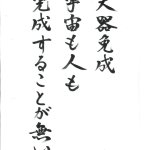 大器免成
宇宙も人も
完成することが無い